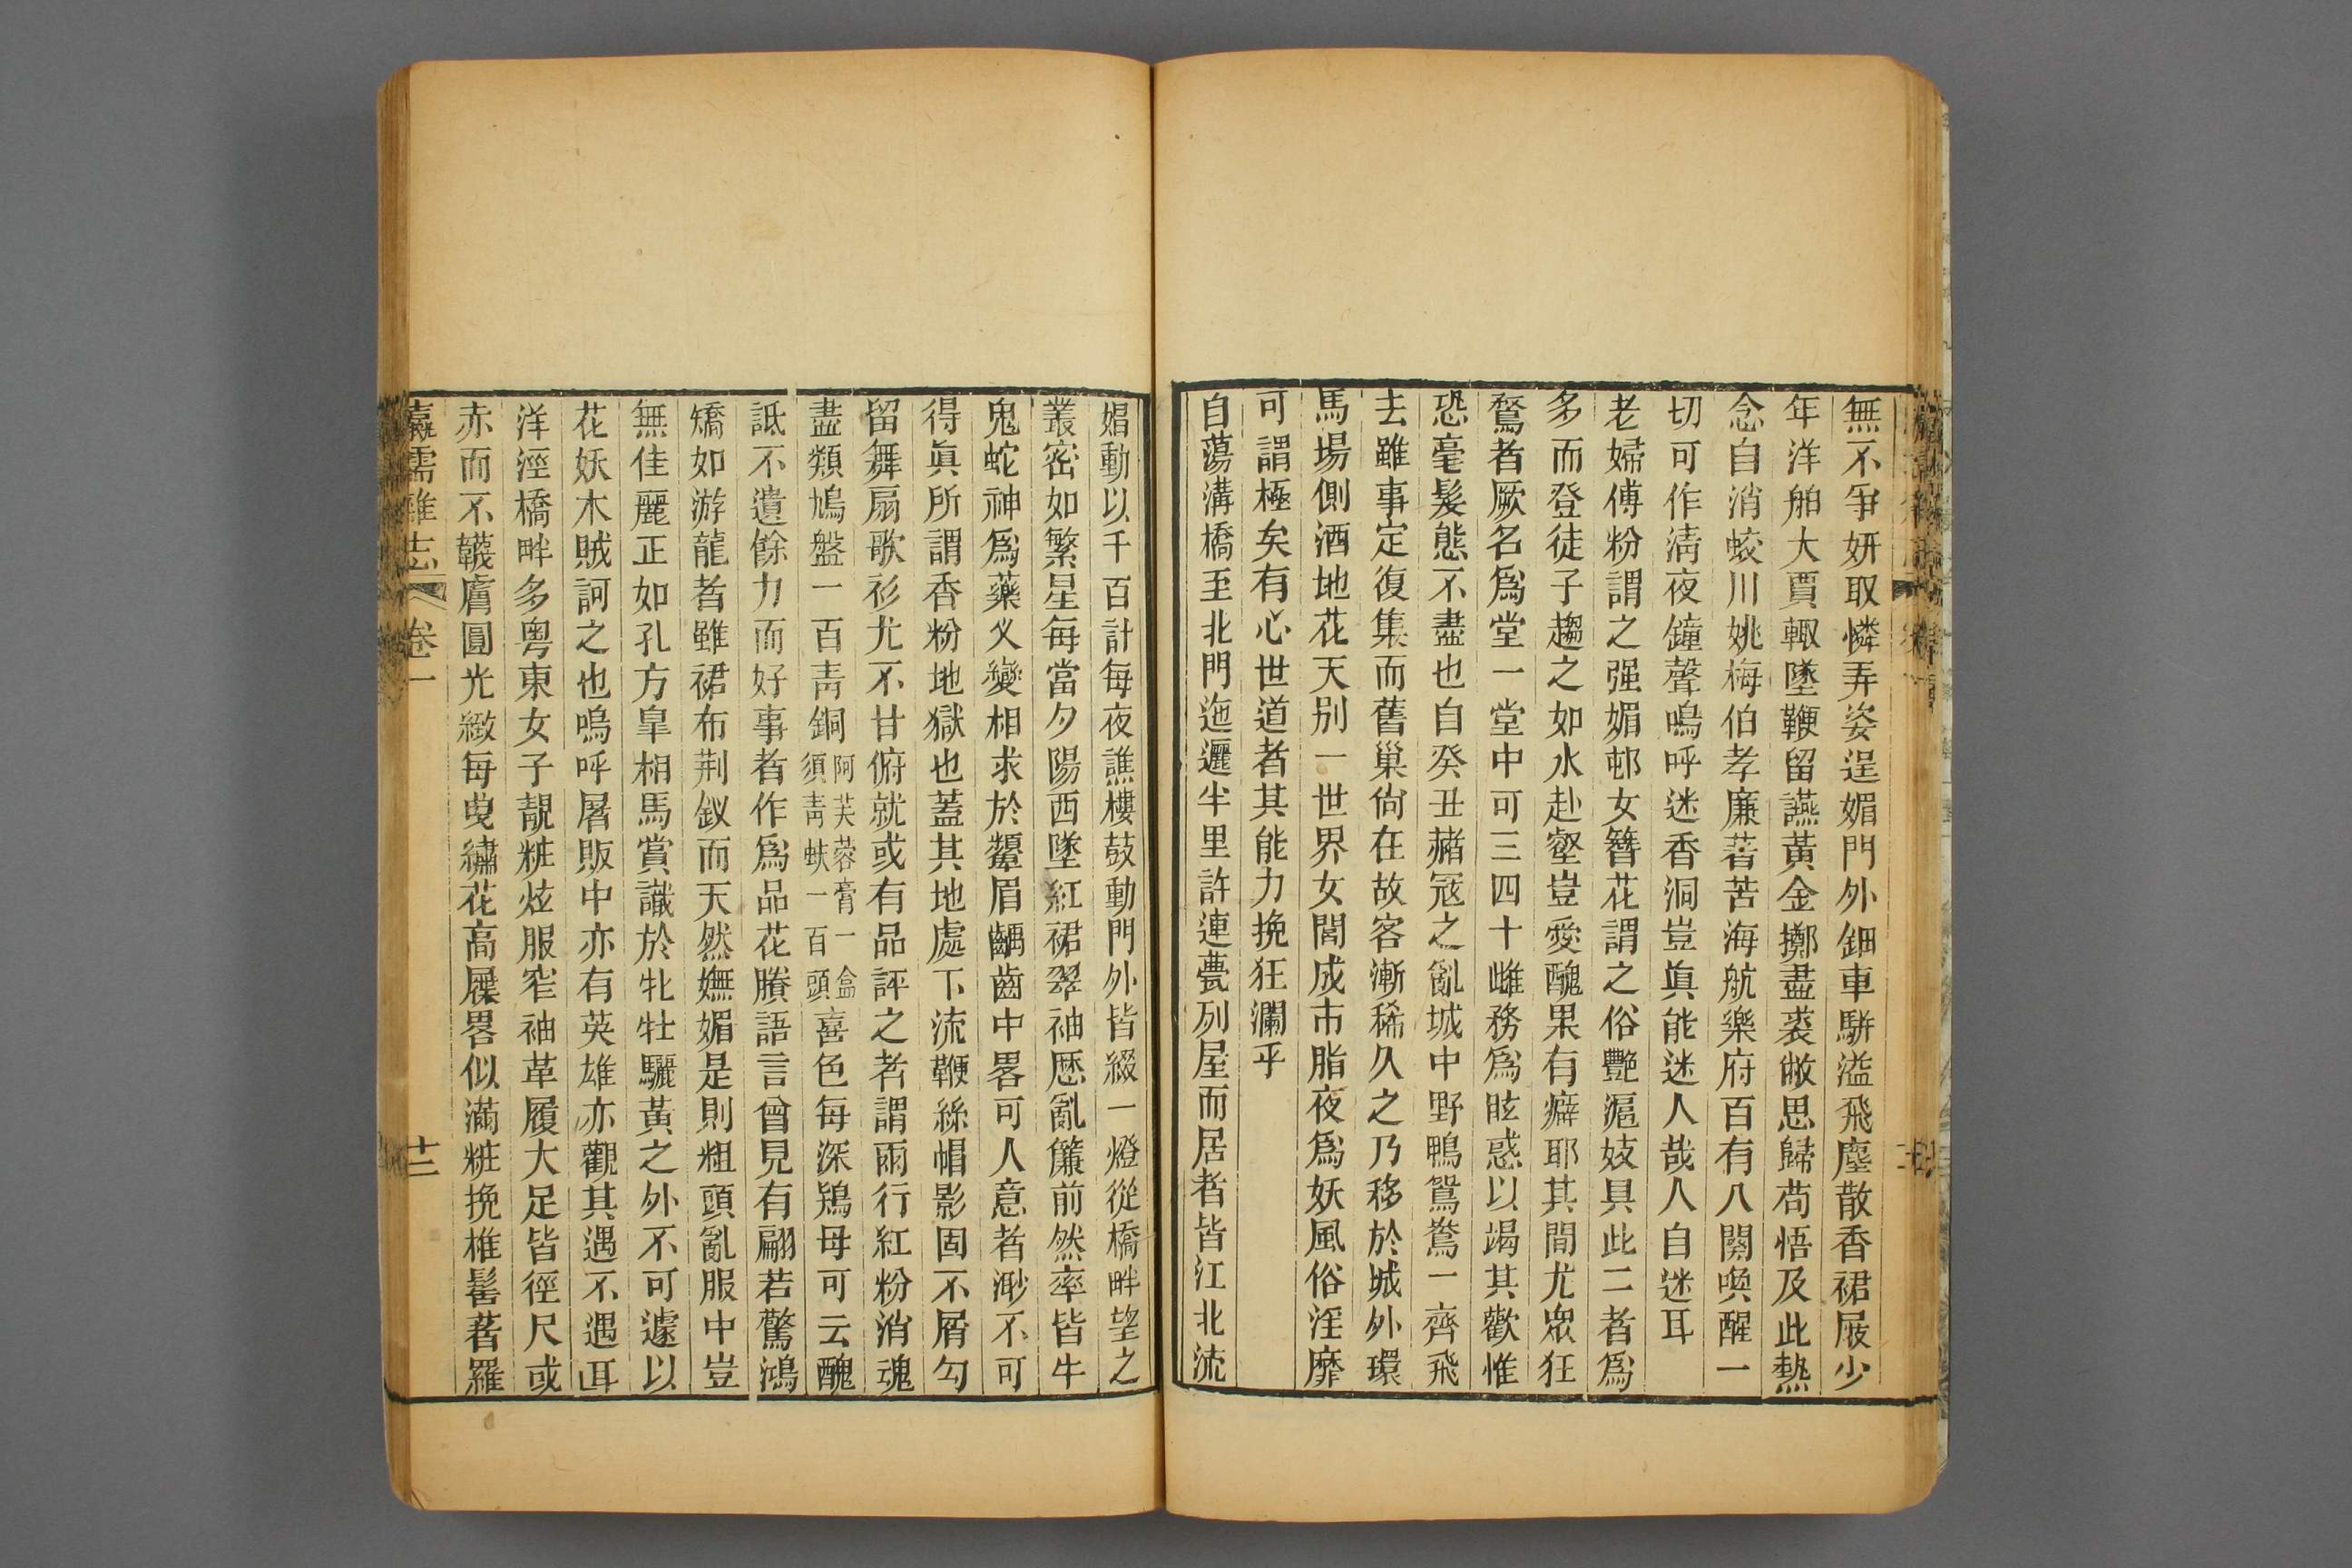 無不爭妍取憐弄姿逞媚門外鈿車駢溢飛塵散香裙屐少
年洋舶大賈輙墜鞭留讌黃金擲盡裘敝思歸苟悟及此熱
念自消蛟川姚梅伯孝廉著苦海航樂府百有八闋喚醒一
切可作淸夜鐘聲嗚呼迷香洞豈眞能迷人哉人自迷耳
老婦傅粉謂之强媚邨女簪花謂之俗艷滬妓具此二者爲
多而登徒子趨之如水赴壑豈愛醜果有癖耶其間尤眾狂
鶩者厥名爲堂一堂中可三四十雌務爲眩惑以竭其歡惟
恐毫髮態不盡也自癸丑赭冦之亂城中野鴨鴛鴦一齊飛
去雖事定復集而舊巢尙在故客漸稀久之乃移於城外環
馬場側酒地花天别一世界女閭成市脂夜爲妖風俗淫靡
可謂極矣有心世道者其能力挽狂瀾乎
自蕩溝橋至北門迤邐半里許連甍列屋而居者皆江北流
娼動以千百計每夜譙樓鼓動門外皆綴一燈從橋畔望之
叢密如繁星每當夕陽西墜紅裙翠袖歷亂簾前然率皆牛
鬼蛇神爲藥义變相求於顰眉齲齒中畧可人意者渺不可
得眞所謂香粉地獄也蓋其地處下流鞭絲帽影固不屑勾
留舞扇歌衫尤不甘俯就或有品評之者謂雨行紅粉消魂
盡類鳩盤一百靑銅阿芙蓉膏一盒須靑蚨一百頭喜色每深鴉母可云醜
詆不遺餘力而好事者作爲品花賸語言曾見有翩若驚鴻
矯如游龍者雖裙布荆釵而天然嫵媚是則粗頭亂服中豈
無佳麗正如孔方皐相馬賞識於牝牡驪黃之外不可遽以
花妖木賊訶之也嗚呼屠販中亦有英雄亦觀其遇不遇耳
洋涇橋畔多粤東女子靚粧炫服窄袖革履大足皆徑尺或
赤而不韈膚圓光緻每曳繡花高屧畧似滿粧挽椎髻著羅
瀛壖雜志 卷一 十三